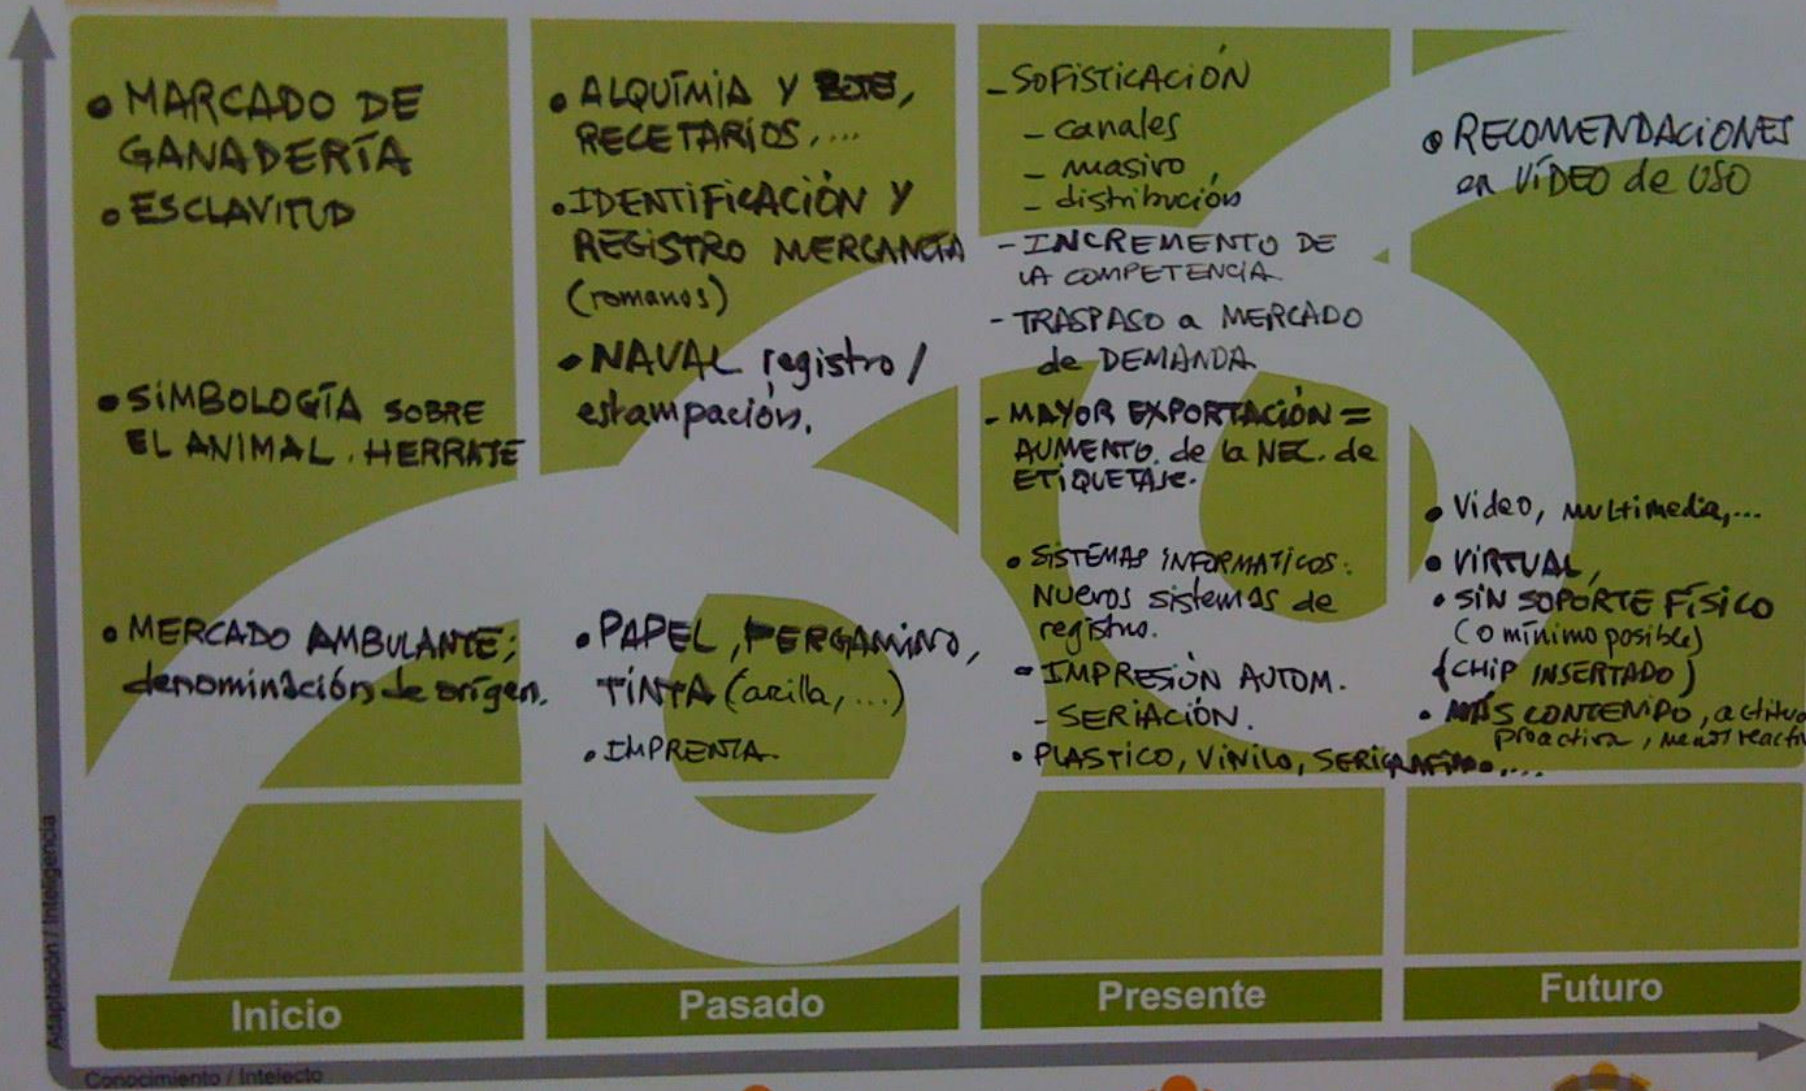 • MARCADO DE
GANADERÍA
• ESCLAVITUD
• SIMBOLOGÍA SOBRE
EL ANIMAL. HERRAJE
• MERCADO AMBULANTE;
denominación de orígen.
• ALQUÍMIA Y BOTE,
RECETARIOS,....
• IDENTIFICACIÓN Y
REGISTRO MERCANCÍA
(romanos)
• NAVAL registro /
estampación.
• PAPEL, PERGAMINO,
TINTA (arcilla, ...)
• IMPRENTA.
- SOFISTICACIÓN
- canales
- masivo,
- distribución
- INCREMENTO DE
LA COMPETENCIA.
- TRASPASO a MERCADO
de DEMANDA
- MAYOR EXPORTACIÓN =
AUMENTO de la NEC. de
ETIQUETAJE.
• SISTEMAS INFORMATICOS:
Nuevos sistemas de
registro.
- IMPRESIÓN AUTOM.
- SERIACIÓN.
• PLASTICO, VINILO,
• RECOMENDACIONES
en VÍDEO de USO
• Video, multimedia,...
• VIRTUAL,
• SIN SOPORTE FÍSICO
(o mínimo posible)
(CHIP INSERTADO)
• MÁS CONTENIDO,
proactiva,
Inicio
Pasado
Presente
Futuro
Adaptación / Inteligencia
Conocimiento / Intelecto